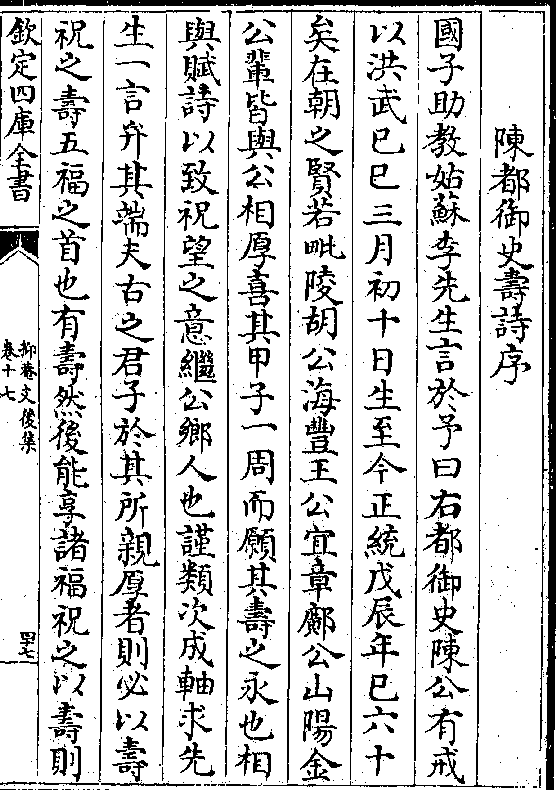 陳都御史壽詩序
國子助教姑蘇李先生言於予曰右都御史陳公有戒
以洪武己巳三月初十日生至今正統戊辰年巳六十
矣在朝之賢若毗陵胡公海豐王公宜章鄺公山陽金
公輩皆與公相厚喜其甲子一周而願其壽之永也相
與賦詩以致祝望之意繼公鄉人也謹類次成軸求先
生一言弁其端夫古之君子於其所親厚者則必以壽
祝之壽五福之首也有壽然後能享諸福祝之以壽則
欽定四庫全書
抑菴文後集
卷十七
四七